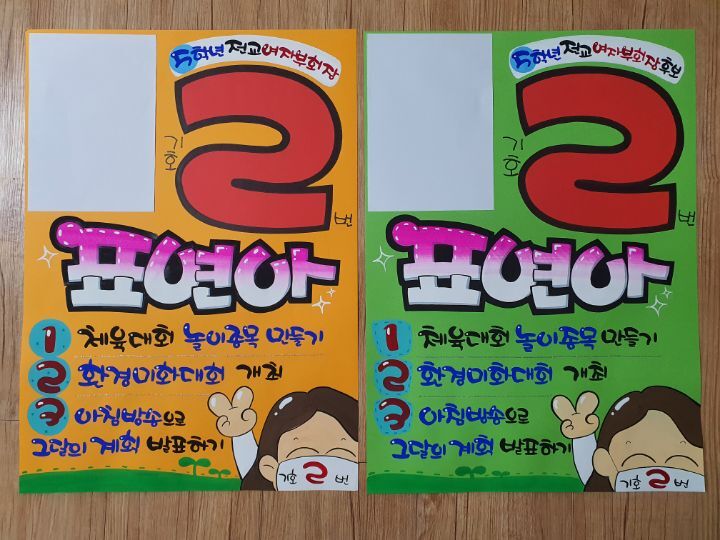 5학년 전교여자부회장
기호
2
번
표연아
1 체육대회 놀이종목 만들기
2 환경미화대회 개최
3 아침방송으로
그달의 계획 발표하기
기호 2 번
5학년 전교여자부회장후보
기호
2
번
표연아
1 체육대회 놀이종목 만들기
2 환경미화대회 개최
3 아침방송으로
그달의 계획 발표하기
기호 2 번